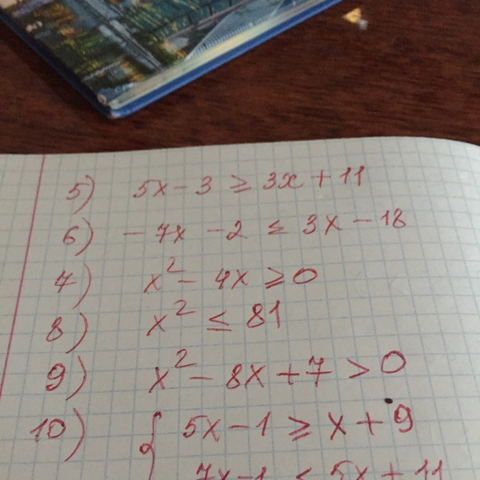 5) 5x - 3 ≥ 3x + 11
6) - 7x - 2 ≤ 3x - 18
7) x² - 4x ≥ 0
8) x² ≤ 81
9) x² - 8x + 7 > 0
10) { 5x - 1 ≥ x + 9
7x - 1 ≤ 5x + 11